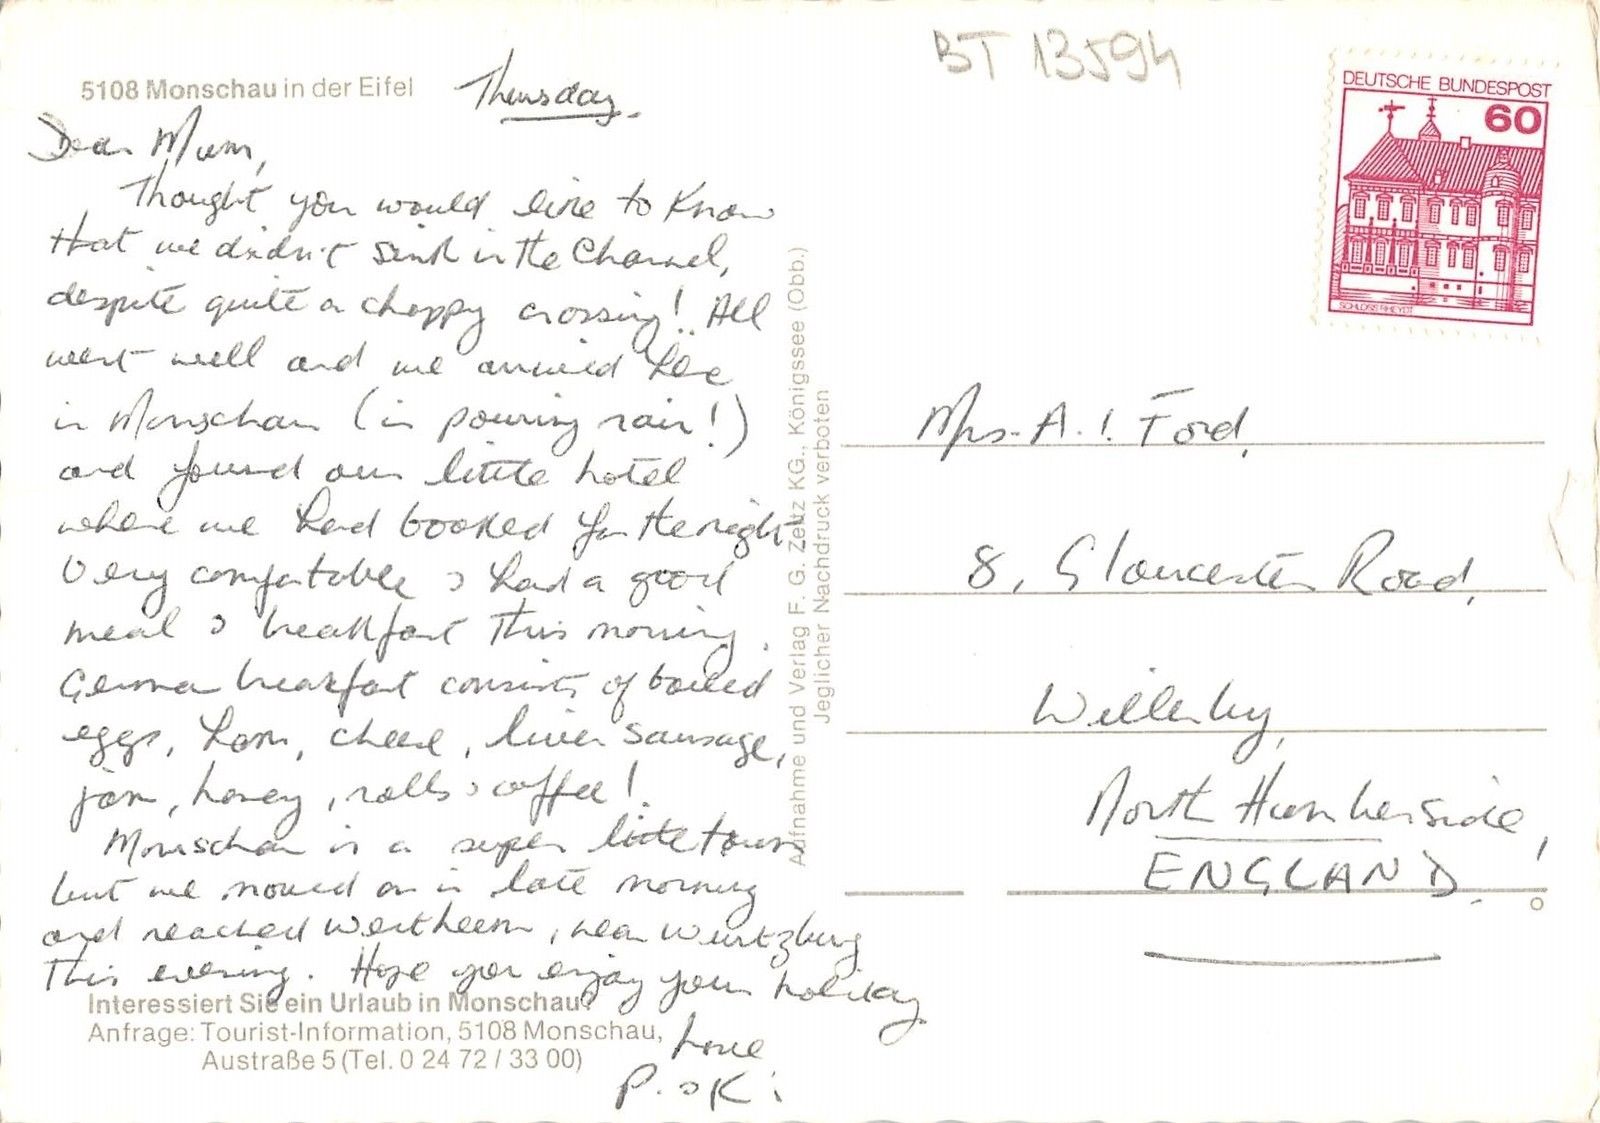 BT 13594
DEUTSCHE BUNDESPOST
60
SCHLOSS RHEYDT
5108 Monschau in der Eifel
Thursday.
Dear Mum,
Thought you would like to know
that we didn't sink in the Channel,
despite quite a choppy crossing! All
went well and we arrived here
in Monschau (in pouring rain!)
and found our little hotel
where we had booked for the night
Very comfortable & had a good
meal & breakfast this morning.
German breakfast consists of boiled
eggs, ham, cheese, liver sausage,
jam, honey, rolls & coffee!
Monschau is a super little town
but we moved on in late morning
and reached Wertheim, near Wurtzburg
this evening. Hope you enjoy your holiday
Love
P. & K.
Interessiert Sie ein Urlaub in Monschau?
Anfrage: Tourist-Information, 5108 Monschau,
Austraße 5 (Tel. 0 24 72 / 33 00)
Aufnahme und Verlag F. G. Zeitz KG., Königssee (Obb.)
Jeglicher Nachdruck verboten
Mrs. A. I. Ford,
8, Gloucester Road,
Willerby,
North Humberside,
ENGLAND.